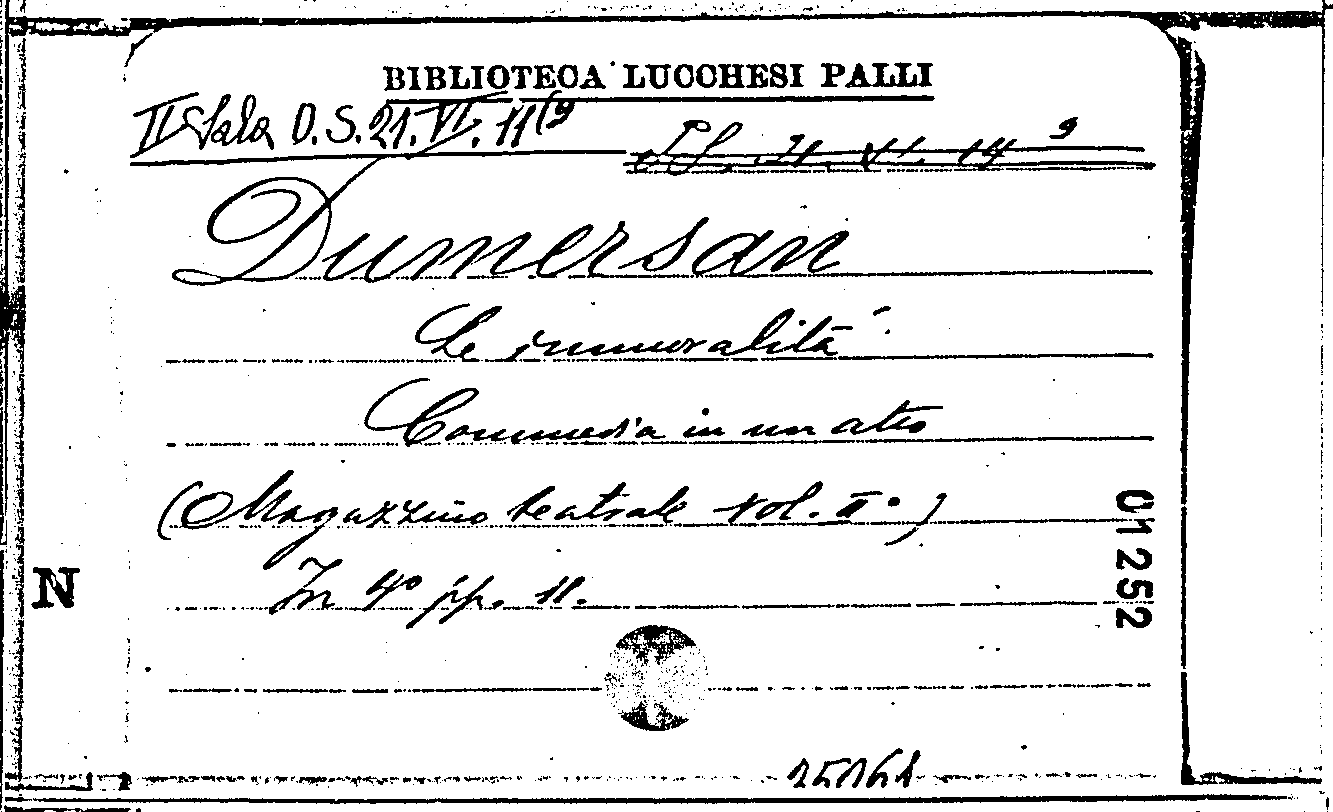 BIBLIOTECA LUCCHESI PALLI
II Sala D. S. 21. VI. 11(9
21. VI. 14 9
Dumersan
Le immoralità
Commedia in un atto
(Magazzino teatrale vol. II°)
In 4° pp. 11.
N
01252